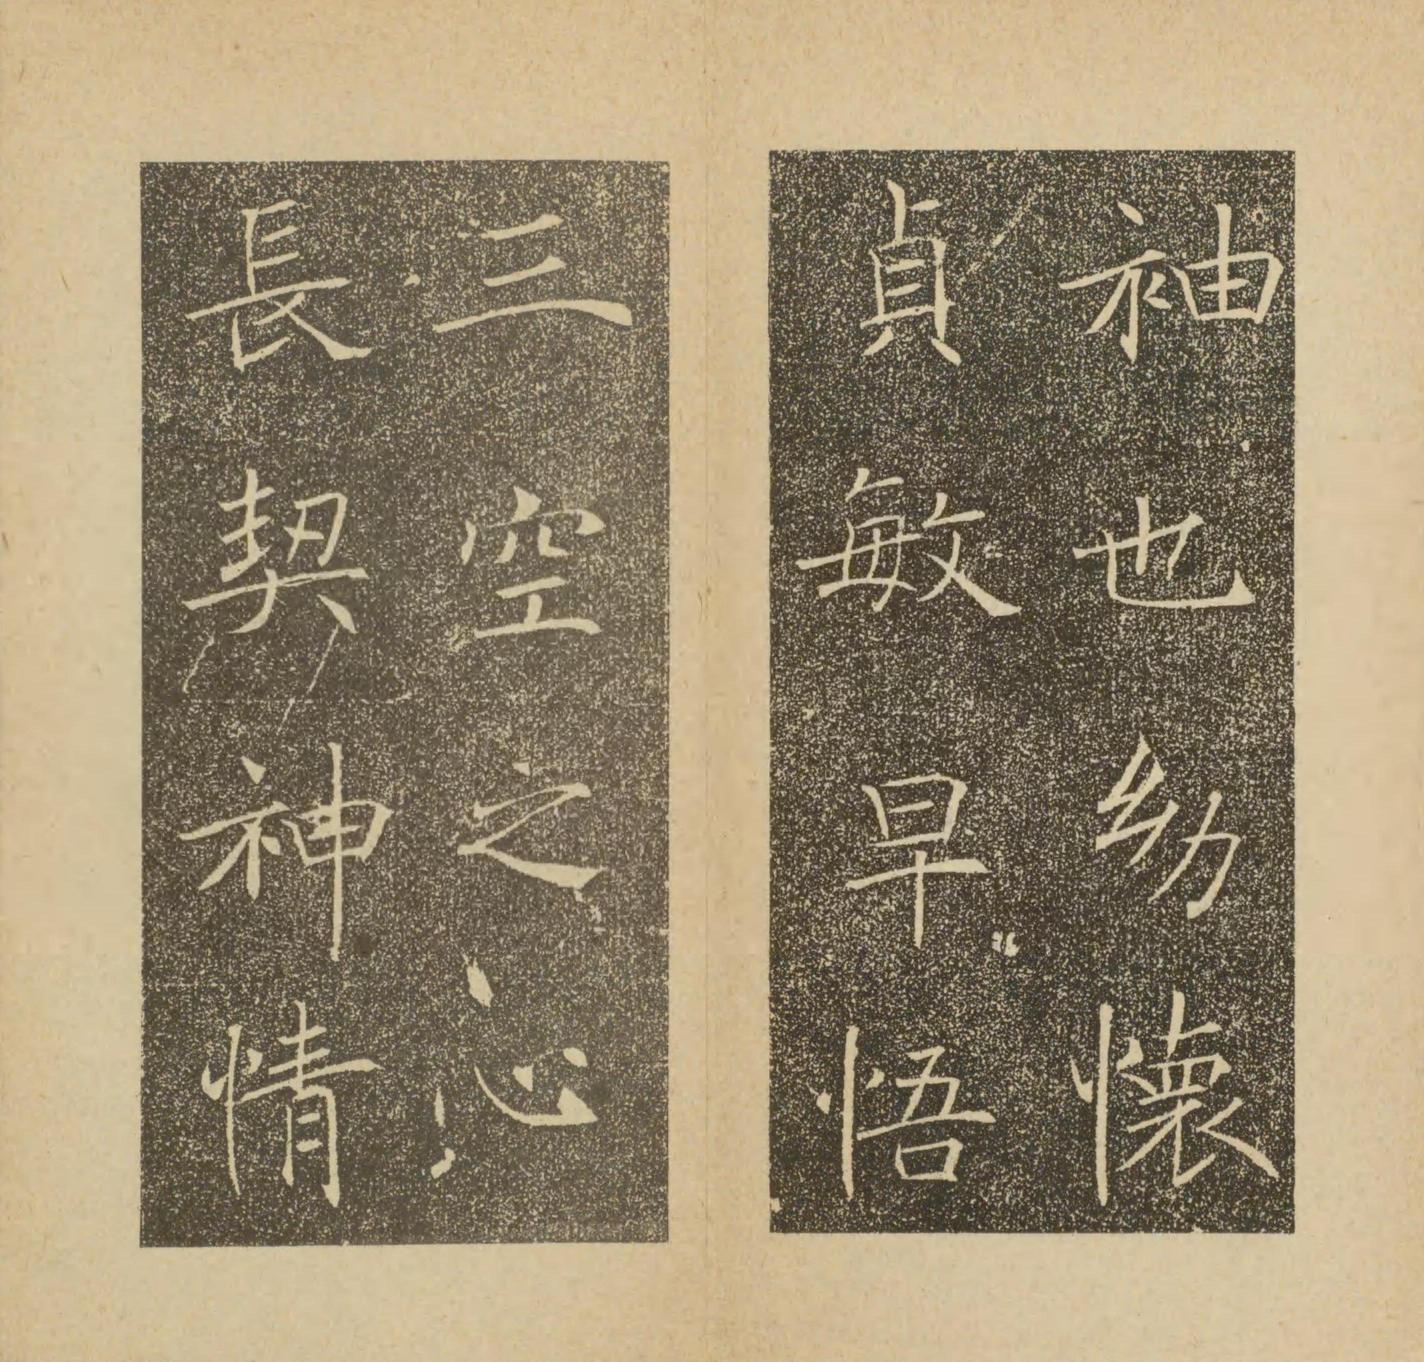 袖也幼懷
貞敏早悟
三空之心
長契神情